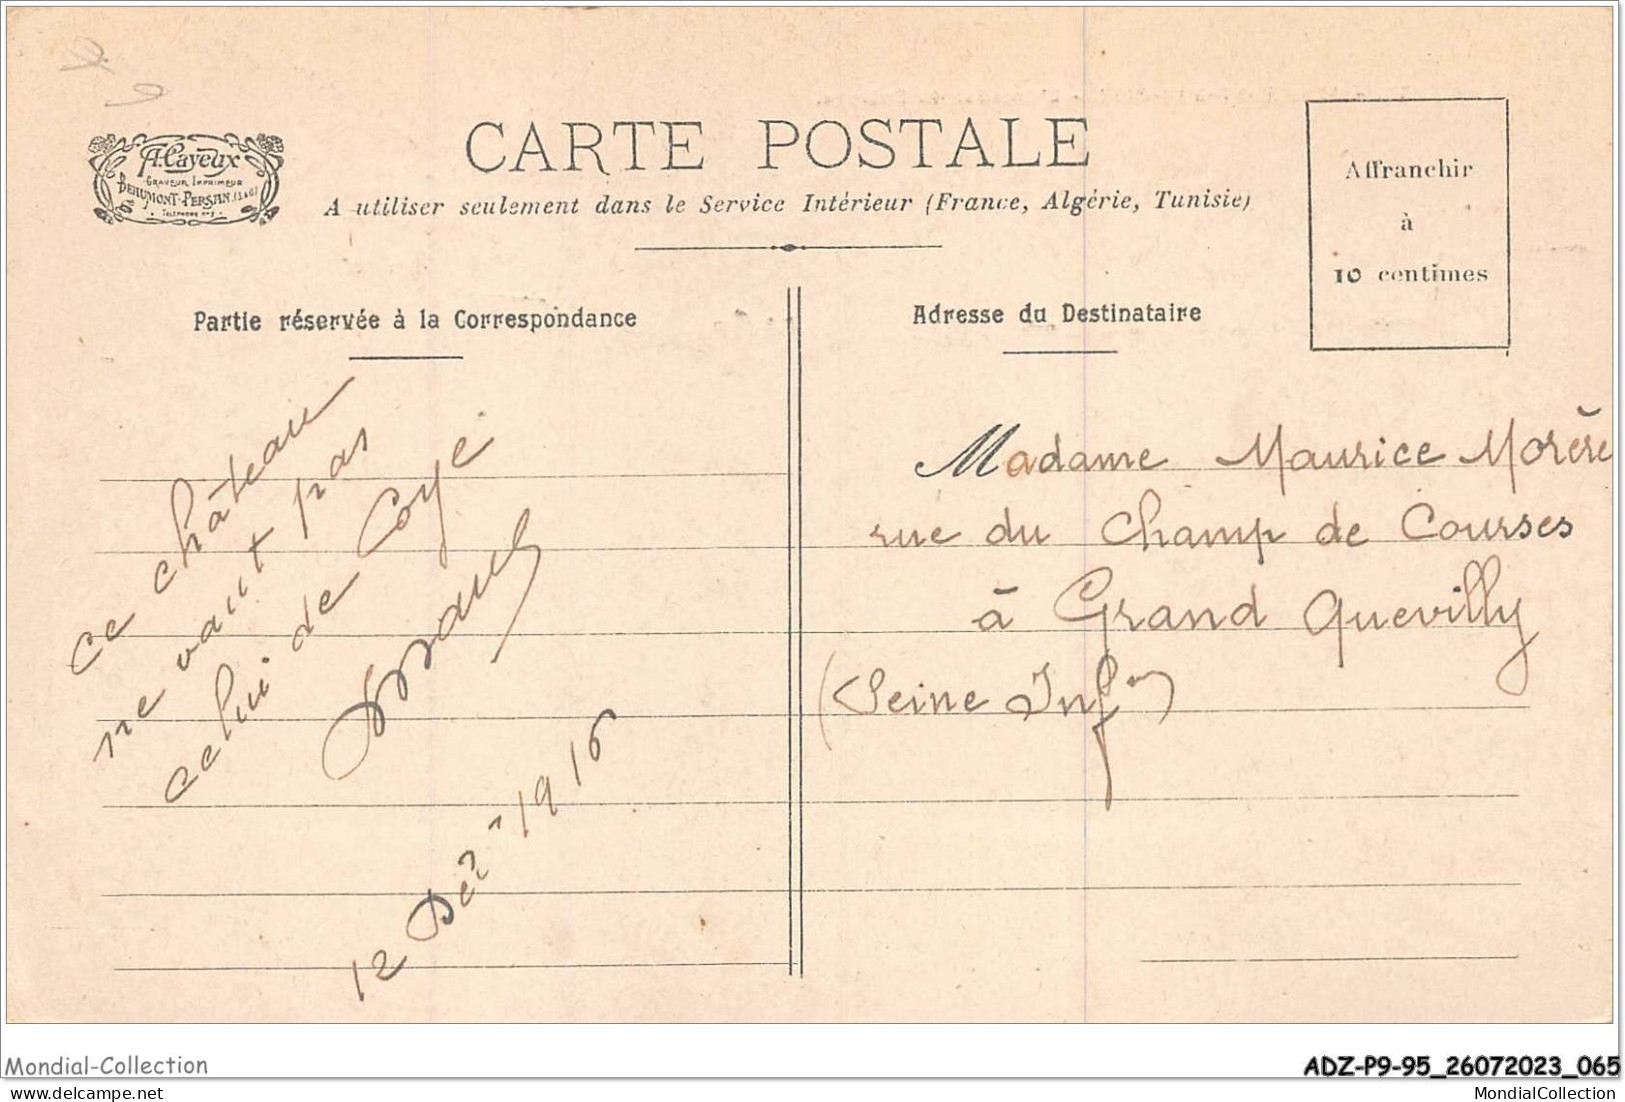 CARTE POSTALE
A utiliser seulement dans le Service Intérieur (France, Algérie, Tunisie)
A. Cayeux
GRAVEUR IMPRIMEUR
BEAUMONT-PERSAN (S&O)
TELEPHONE N°3
Affranchir
à
10 centimes
Partie réservée à la Correspondance
ce château
ne vaut pas
celui de Coye
12 Déc 1916
Adresse du Destinataire
Madame Maurice Morère
rue du Champ de Courses
à Grand Quevilly
(Seine Infre)
Mondial-Collection
ADZ-P9-95_26072023_065
MondialCollection